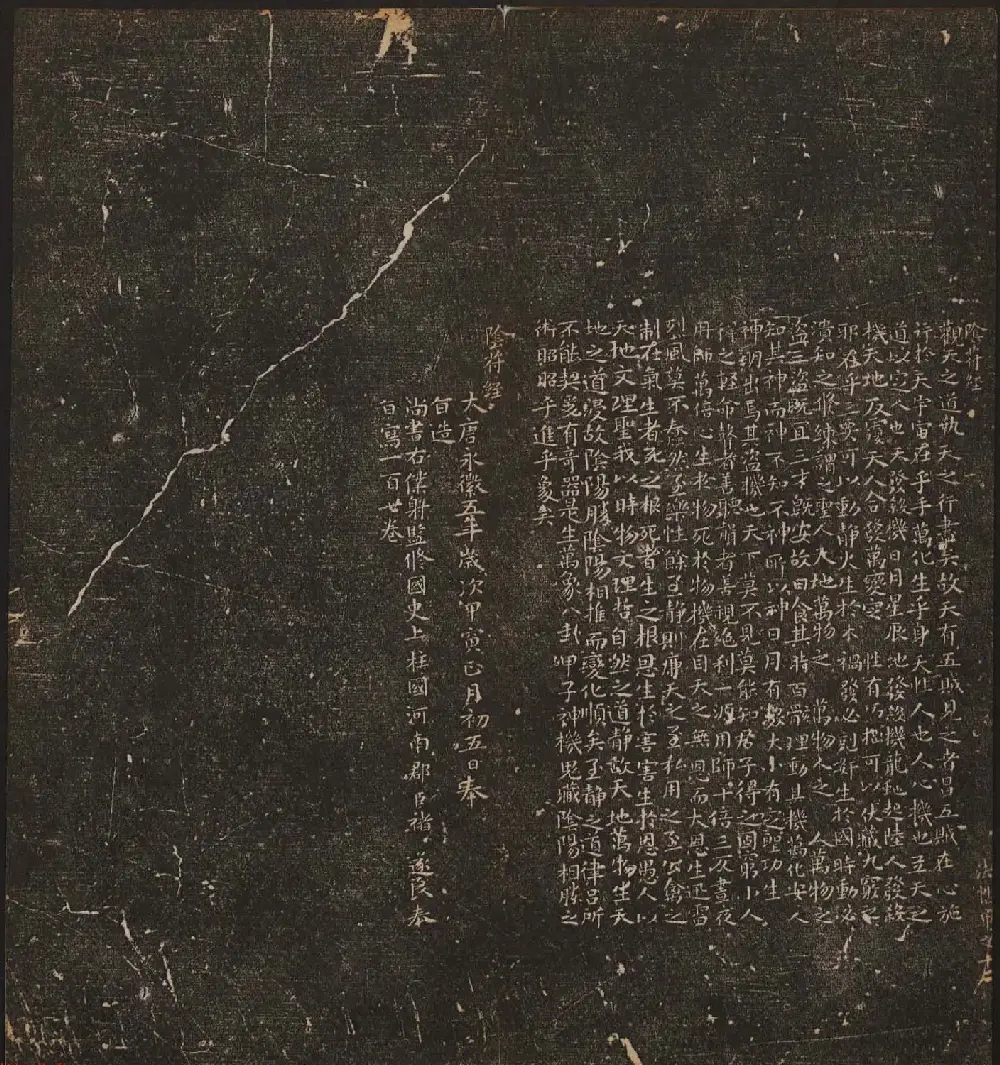 陰符經
觀天之道執天之行盡矣故天有五賊見之者昌五賊在心施
行於天宇宙在乎手萬化生乎身天性人也人心機也立天之
道以定人也天發殺機日月星辰地發殺機龍蛇起陸人發殺
機天地反覆天人合發萬變定 性有巧拙可以伏藏九竅之
耶在乎三要可以動靜火生於木禍發必剋奸生於國時動必
潰知之修練謂之聖人天地萬物之 萬物人之 人萬物之
盜三盜既宜三才既安故曰食其時百骸理動其機萬化安人
知其神而神不知不神所以神日月有數大小有定聖功生
神明出焉其盜機也天下莫不見莫能知君子得之固窮小人
得之輕命瞽者善聽聾者善視絕利一源用師十倍三反晝夜
用師萬倍心生於物死於物機在目天之無恩而大恩生迅雷
烈風莫不蠢然至樂性餘至靜則廉天之至私用之至公禽之
制在氣生者死之根死者生之根恩生於害害生於恩愚人以
天地文理聖我以時物文理哲自然之道靜故天地萬物生天
地之道浸故陰陽勝陰陽相推而變化順矣至靜之道律呂所
不能契爰有奇器是生萬象八卦甲子神機鬼藏陰陽相勝之
術昭昭乎進乎象矣
陰符經
大唐永徽五年歲次甲寅正月初五日奉
旨造
尚書右僕射監修國史上柱國河南郡臣褚遂良奉
旨寫一百廿卷